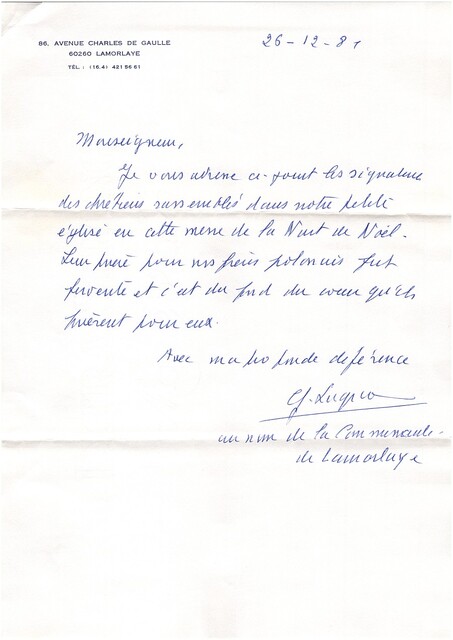 86, AVENUE CHARLES DE GAULLE
60260 LAMORLAYE
TÉL : (16.4) 421 56 61
26-12-81
Monseigneur,
Je vous adresse ci-joint les signatures
des chrétiens rassemblés dans notre petite
église en cette messe de la Nuit de Noël.
Leur prière pour nos frères polonais fut
fervente et c'est du fond du coeur qu'ils
prièrent pour eux.
Avec ma profonde déférence
au nom de la Communauté
de Lamorlaye